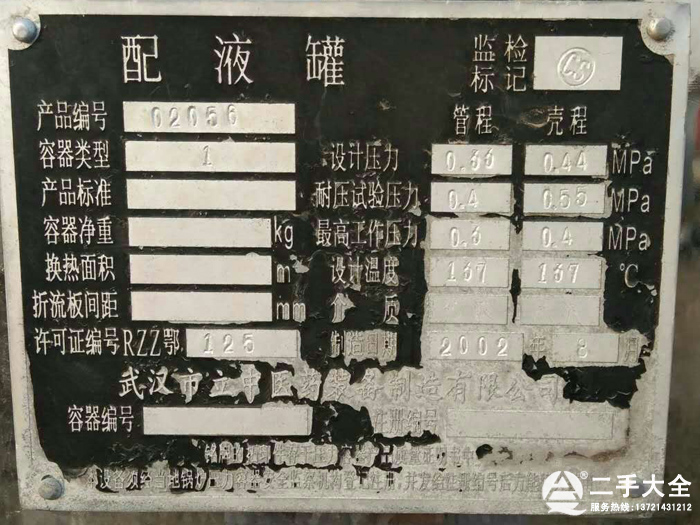 配液罐 监检标记
管程 壳程
产品编号 02056
容器类型 1 设计压力 0.33 0.44 MPa
产品标准 耐压试验压力 0.4 0.55 MPa
容器净重 kg 最高工作压力 0.3 0.4 MPa
换热面积 m² 设计温度 137 137 ℃
折流板间距 mm 介质
许可证编号 RZZ鄂 125 制造日期 2002 年 8 月
武汉市立中医药设备制造有限公司
容器编号 注册编号
二手大全
服务热线:13721431212